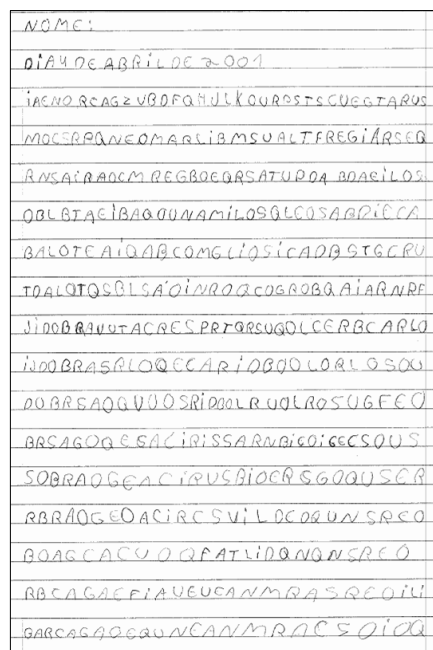 NOME:
DIA 4 DE ABRIL DE 2001
iAENORCAGZVBDFQHJLKOUROSTSCUEGTARUS
MOCSRPQNEOMARLIBMSUALTFREGIÃRSEQ
RNSAiRAOCMREGBOEQRSATUPOA BOAEiLOS
OBLBTAEiBAQOUNAMiLOSQLEOSARDiECA
BALOTEAiQABCOMGLiOSiCAOBSTGCRU
TOALQTQSBLSAOiNROQCOGROBQAiARNRF
JiDOBRAVUTACRESPRTQRSUQOLCERBCARLO
iJOOBRASRLOQECARiOBOOLORLOSOU
DOBRSAOQUUOSRiDBOLRUOLROSUGFEO
BRSAGOQESACiRiSSARNBiGOiGECSOUS
SOBRAOGEACiRUSBiOERSGOQUSCR
RBRÃOGEOACiRCSViLDCOQUNSREO
BOAGCACUOQFATLiDQNQNSREO
RBCAGAEFiAUEUCANMRASREOiLi
GARCAGAOEQUNCANMRACSOiOQ